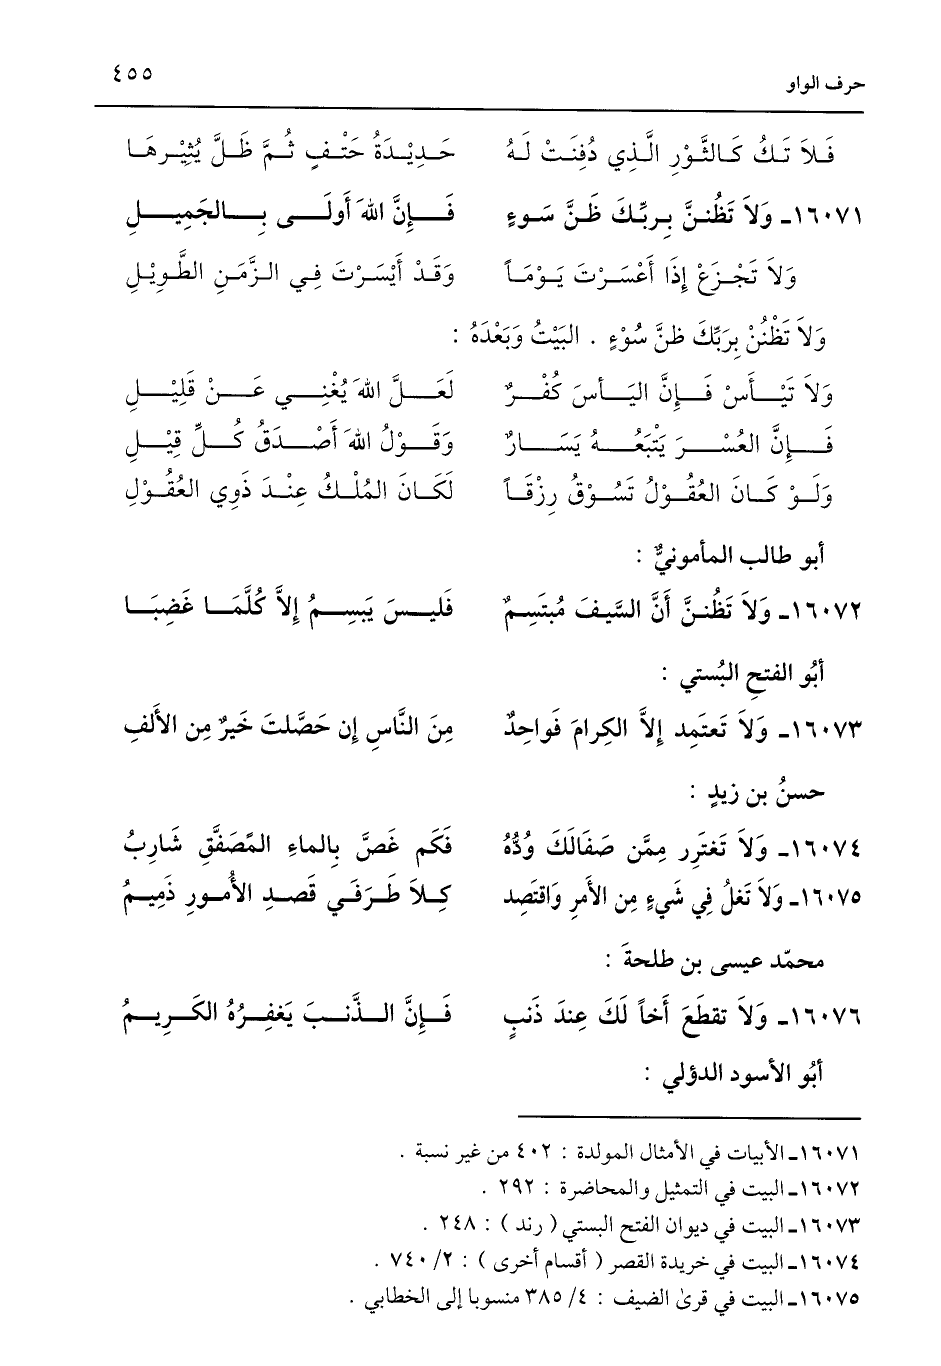 حرف الواو ٤٥٥
فَلاَ تَكُ كَالثَّوْرِ الَّذِي دُفِنَتْ لَهُ حَدِيْدَةُ حَتْفٍ ثُمَّ ظَلَّ يُثِيْرهَا
١٦٠٧١ـ وَلاَ تَظُننَّ بِربِّكَ ظَنَّ سَوءٍ فَإِنَّ اللهَ أَولَى بِالجَمِيلِ
وَلاَ تَجْزَعْ إِذَا أَعْسَرْتَ يَوْمَاً وَقَدْ أَيْسَرْتَ فِي الزَّمَنِ الطَّوِيْلِ
وَلاَ تَظْنُنْ بِرَبِّكَ ظَنَّ سُوْءٍ . البَيْتُ وَبَعْدَهُ :
وَلاَ تَيْأَسْ فَإِنَّ اليَأسَ كُفْرٌ لَعَلَّ اللهَ يُغْنِي عَنْ قَلِيْلِ
فَإِنَّ العُسْرَ يَتْبَعُهُ يَسَارٌ وَقَوْلُ اللهَ أَصْدَقُ كُلِّ قِيْلِ
وَلَوْ كَانَ العُقُوْلُ تَسُوْقُ رِزْقَاً لَكَانَ المُلْكُ عِنْدَ ذَوِي العُقُوْلِ
أبو طالب المأمونيُّ :
١٦٠٧٢ـ وَلاَ تَظُننَّ أَنَّ السَّيفَ مُبتَسِمٌ فَليسَ يَبسِمُ إِلاَّ كُلَّمَا غَضِبَا
أبُو الفتحِ البُستي :
١٦٠٧٣ـ وَلاَ تَعتَمِد إِلاَّ الكِرامَ فَواحِدٌ مِنَ النَّاسِ إِن حَصَّلتَ خَيرٌ مِن الأَلفِ
حسنُ بن زيدٍ :
١٦٠٧٤ـ وَلاَ تَغتَرِر مِمَّن صَفَالَكَ وُدُّهُ فَكَم غَصَّ بِالماءِ المُصَفَّقِ شَارِبُ
١٦٠٧٥ـ وَلاَ تَغلُ فِي شَيءٍ مِن الأَمرِ وَاقتَصِد كِلاَ طَرَفَي قَصدِ الأُمورِ ذَمِيمُ
محمّد عيسى بن طلحةَ :
١٦٠٧٦ـ وَلاَ تقطَعَ أَخاً لَكَ عِندَ ذَنبٍ فَإِنَّ الذَّنبَ يَغفِرُهُ الكَرِيمُ
أبُو الأسود الدؤلي :
١٦٠٧١ـ الأبيات في الأمثال المولدة : ٤٠٢ من غير نسبة .
١٦٠٧٢ـ البيت في التمثيل والمحاضرة : ٢٩٢ .
١٦٠٧٣ـ البيت في ديوان الفتح البستي ( رند ) : ٢٤٨ .
١٦٠٧٤ـ البيت في خريدة القصر ( أقسام أخرى ) : ٢/ ٧٤٠ .
١٦٠٧٥ـ البيت في قرىٰ الضيف : ٤/ ٣٨٥ منسوبا إلى الخطابي .